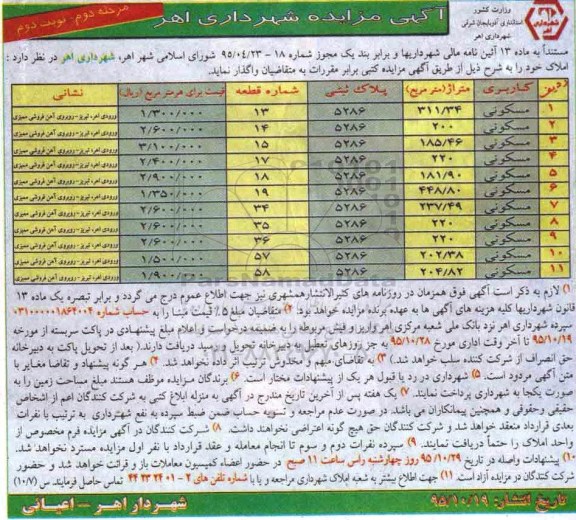 وزارت کشور
استانداری آذربایجان شرقی
شهرداری اهر
آگهی مزایده شهرداری اهر
مرحله دوم- نوبت دوم
مستنداً به ماده ۱۳ آئین نامه مالی شهرداریها و برابر بند یک مجوز شماره ۱۸ – ۹۵/۰۴/۲۳ شورای اسلامی شهر اهر، شهرداری اهر در نظر دارد :
املاک خود را به شرح ذیل از طریق آگهی مزایده کتبی برابر مقررات به متقاضیان واگذار نماید.
ردیف کاربری متراژ(متر مربع) پلاک ثبتی شماره قطعه قیمت برای هرمتر مربع (ریال) نشانی
۱ مسکونی ۳۱۱/۳۴ ۵۲۸۶ ۱۳ ۱/۳۰۰/۰۰۰ ورودی اهر، تبریز-روبروی آهن فروشی ممیزی
۲ مسکونی ۲۰۰ ۵۲۸۶ ۱۴ ۲/۶۰۰/۰۰۰ ورودی اهر، تبریز-روبروی آهن فروشی ممیزی
۳ مسکونی ۱۸۵/۴۶ ۵۲۸۶ ۱۵ ۳/۱۰۰/۰۰۰ ورودی اهر، تبریز-روبروی آهن فروشی ممیزی
۴ مسکونی ۲۲۰ ۵۲۸۶ ۱۷ ۲/۴۰۰/۰۰۰ ورودی اهر، تبریز-روبروی آهن فروشی ممیزی
۵ مسکونی ۱۸۱/۹۰ ۵۲۸۶ ۱۸ ۲/۹۰۰/۰۰۰ ورودی اهر، تبریز-روبروی آهن فروشی ممیزی
۶ مسکونی ۴۴۸/۸۰ ۵۲۸۶ ۱۹ ۱/۳۵۰/۰۰۰ ورودی اهر، تبریز-روبروی آهن فروشی ممیزی
۷ مسکونی ۲۳۷/۴۹ ۵۲۸۶ ۳۴ ۲/۶۰۰/۰۰۰ ورودی اهر، تبریز-روبروی آهن فروشی ممیزی
۸ مسکونی ۲۲۰ ۵۲۸۶ ۳۵ ۲/۶۰۰/۰۰۰ ورودی اهر، تبریز-روبروی آهن فروشی ممیزی
۹ مسکونی ۲۲۰ ۵۲۸۶ ۳۶ ۲/۶۰۰/۰۰۰ ورودی اهر، تبریز-روبروی آهن فروشی ممیزی
۱۰ مسکونی ۲۰۲/۳۸ ۵۲۸۶ ۵۷ ۱/۵۰۰/۰۰۰ ورودی اهر، تبریز-روبروی آهن فروشی ممیزی
۱۱ مسکونی ۲۰۴/۸۲ ۵۲۸۶ ۵۸ ۱/۹۰۰/۰۰۰ ورودی اهر، تبریز-روبروی آهن فروشی ممیزی
ParsNamadData
۱) لازم به ذکر است آگهی فوق همزمان در روزنامه های کثیرالانتشارهمشهری نیز جهت اطلاع عموم درج می گردد و برابر تبصره یک ماده ۱۳
قانون شهرداریها کلیه هزینه های آگهی ها به عهده برنده مزایده خواهد بود. ۲) متقاضیان مبلغ ۵٪ قیمت مبنا را به حساب شماره ۰۳۱۰۰۰۰۰۱۸۶۴۰۰۴
سپرده شهرداری اهر نزد بانک ملی شعبه مرکزی اهر واریز و فیش مربوطه را به ضمیمه درخواست و اعلام مبلغ پیشنهادی در پاکت سربسته از مورخه
۹۵/۱۰/۱۹ تا آخر وقت اداری مورخ ۹۵/۱۰/۲۸ به جز روزهای تعطیل به دبیرخانه تحویل و رسید دریافت دارند.( بعد از تحویل پاکت به دبیرخانه
حق انصراف از شرکت کننده سلب خواهد شد.) ۳) به تقاضای مبهم و مخدوش ترتیب اثر داده نخواهد شد ۴) هر گونه پیشنهاد و تقاضا مغایر با
متن آگهی مردود است. ۵) شهرداری در رد یا قبول هر یک از پیشنهادات مختار است ۶) برندگان مزایده موظف هستند مبلغ مساحت زمین را به
صورت یکجا به شهرداری پرداخت نمایند. ۷) یک هفته پس از آخرین تاریخ مندرج در آگهی به منزله ابلاغ کتبی به شرکت کنندگان اعم از اشخاص
حقیقی وحقوقی و همچنین پیمانکاران می باشد. در صورت عدم مراجعه و تسویه حساب ضمن ضبط سپرده به نفع شهرداری به ترتیب با نفرات
بعدی قرارداد منعقد خواهد شد و شرکت کنندگان حق هیچ گونه اعتراضی نخواهند داشت. ۸) شرکت کنندگان در آگهی مزایده فرم مخصوص از
واحد املاک را حتماً دریافت نمایند. ۹) سپرده نفرات دوم و سوم تا انجام معامله و عقد قرارداد با نفر اول مزایده مسترد نخواهد شد.
۱۰) پیشنهادات واصله در تاریخ ۹۵/۱۰/۲۹ روز چهارشنبه راس ساعت ۱۱ صبح در حضور اعضاء کمیسیون معاملات باز و قرائت خواهد شد و حضور
شرکت کنندگان در مزایده آزاد است. ۱۱) جهت اطلاع بیشتر به شعبه املاک شهرداری مراجعه و یا با شماره تلفن های ۲ – ۲۴۰۱ ۴۴۲۳ تماس حاصل فرمایند س (۱۰/۷)
تاریخ انتشار: ۹۵/۱۰/۱۹
شهردار اهر – اعیانی